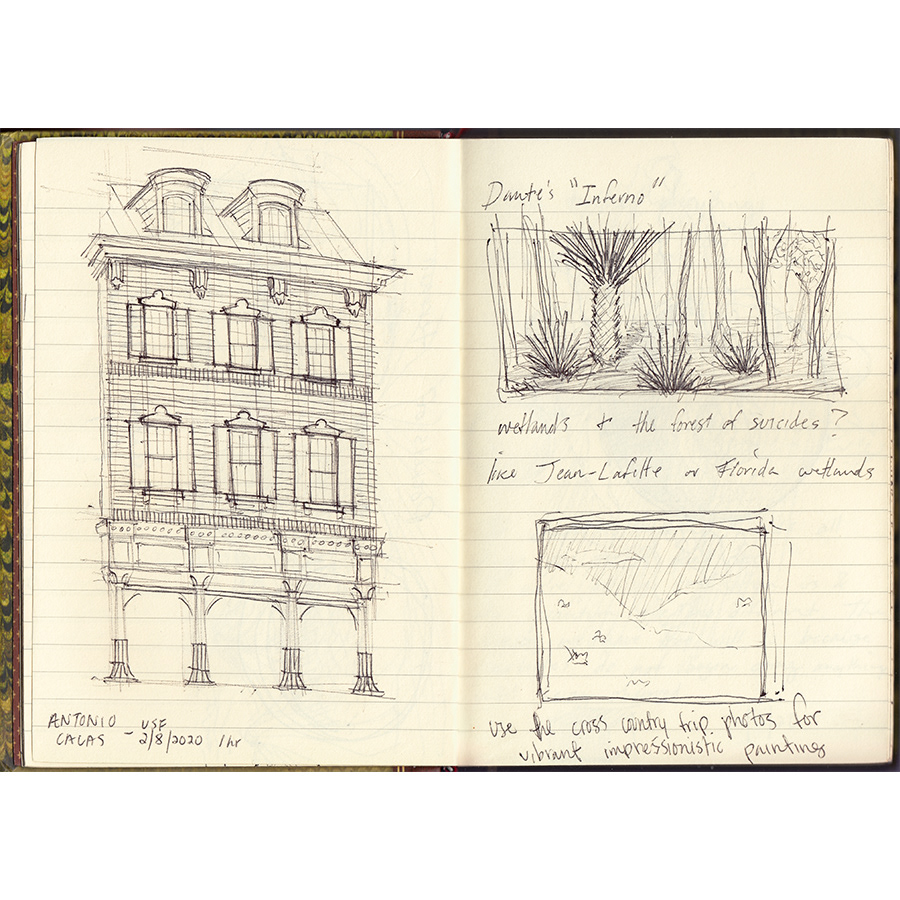 ANTONIO
CALAS - USF
2/8/2020 1hr
Dante's "Inferno"
wetlands & the forest of suicides?
like Jean-Lafitte or Florida wetlands
use the cross country trip photos for
vibrant impressionistic paintings